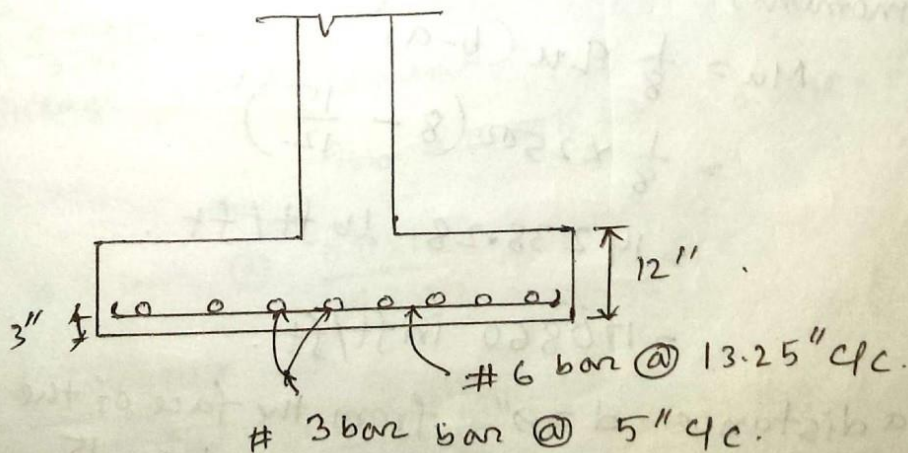 12"
3"
# 6 bar @ 13.25" c/c.
# 3 bar bar @ 5" c/c.